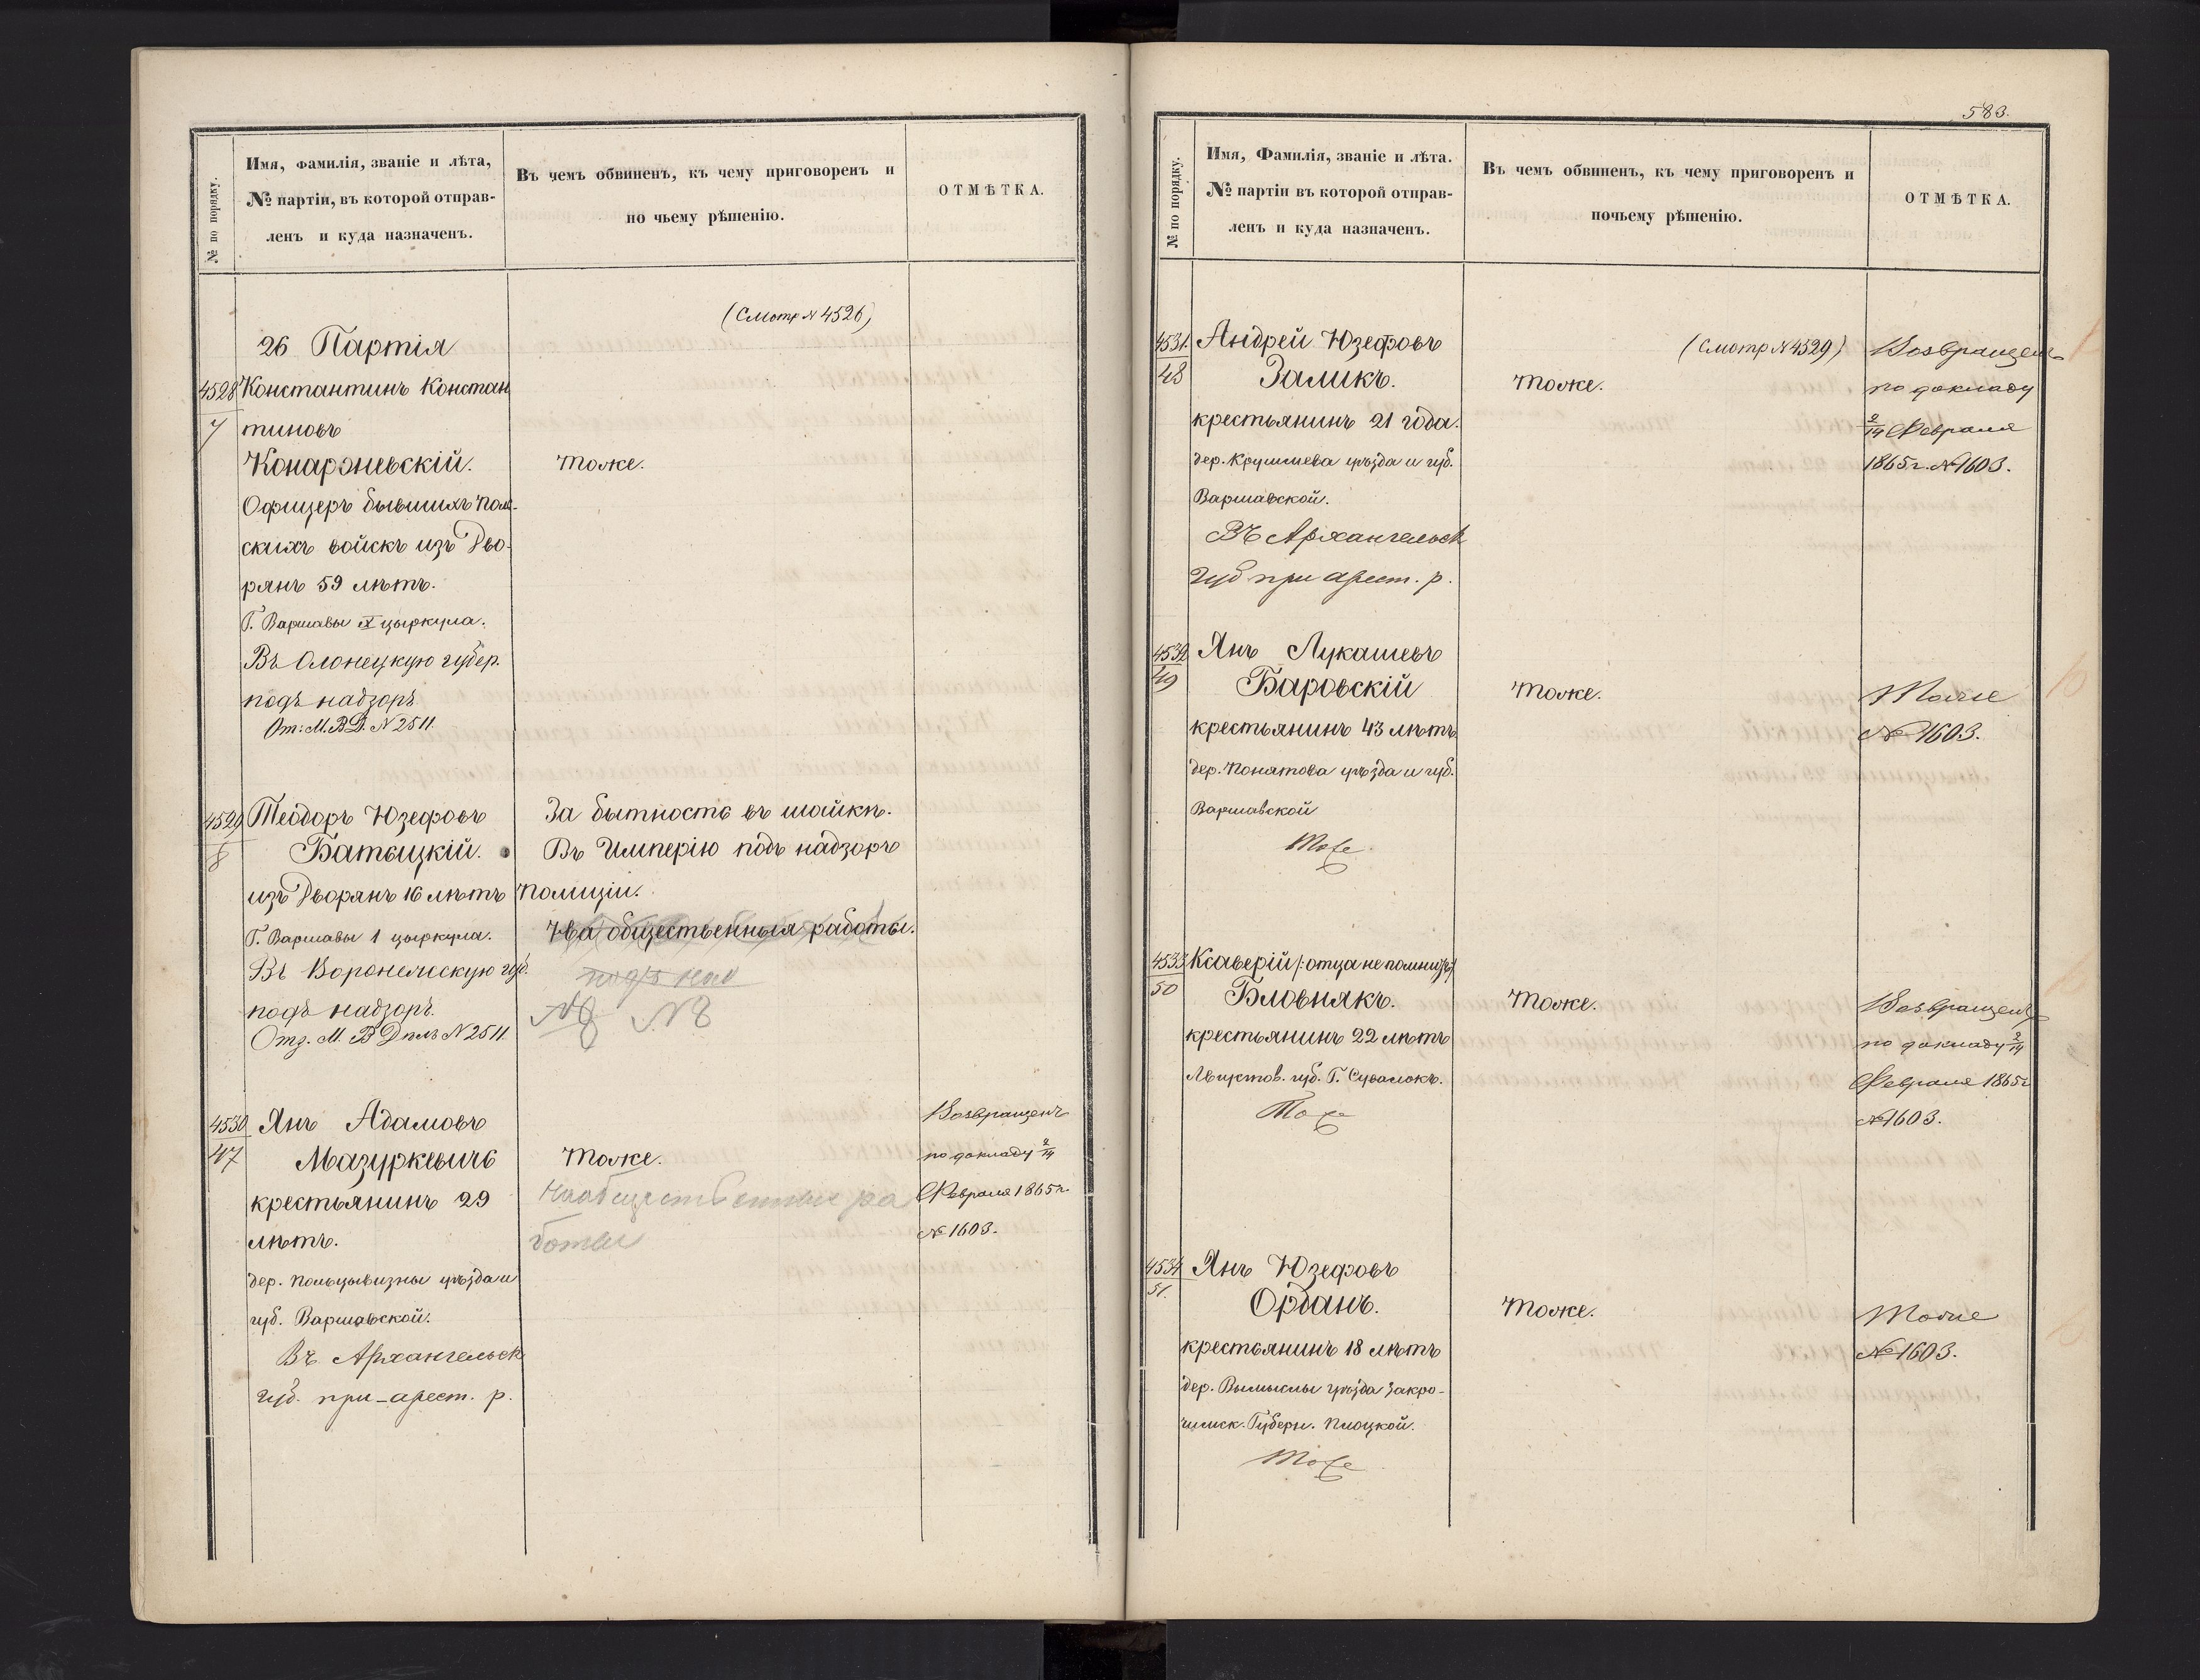 № по порядку.
Имя, фамилія, званіе и лѣта,
№ партіи, въ которой отправ-
ленъ и куда назначенъ.
Въ чемъ обвиненъ, къ чему приговоренъ и
по чьему рѣшенію.
ОТМѢТКА.
(Смотр N 4526)
26 Партія
4528
7
Константинъ Констан
тиновъ
Конарэневскій.
Тоже.
Офицеръ бывшихъ Поль-
скихъ войскъ изъ Дво-
рянъ 59 лѣтъ.
Г. Варшавы IX цыркула.
Въ Олонецкую губер.
подъ надзоръ
От: М.В.Д. N 2511
4529
8
Теодоръ Юзефовъ
Батыцкій.
изъ Дворянъ 16 лѣтъ
Г. Варшавы 1 цыркула.
Въ Воронежскую губ.
подъ надзоръ.
Отд. М. В Дѣлъ N 2511.
За бытность въ шайкѣ.
Въ Имперію подъ надзоръ
Полиціи.
На общественныя работы.
подъ над
N 8 N 8
4530
47
Янъ Адамовъ
Мазуркевичъ
крестьянинъ 29
лѣтъ.
дер. Польцывизны уѣзда и
губ. Варшавской.
Въ Архангельск
губ. при арест. р.
Тоже.
На общественные ра
боты
Возвращенъ
по докладу 2/14
Февраля 1865 г.
№ 1603.
583.
№ по порядку.
Имя, Фамилія, званіе и лѣта.
№ партіи въ которой отправ-
ленъ и куда назначенъ.
Въ чемъ обвиненъ, къ чему приговоренъ и
почьему рѣшенію.
ОТМѢТКА.
(Смотр N 4529)
4531.
48
Андрей Юзефовъ
Заликъ.
крестьянинъ 21 года.
дер. Крушева уѣзда и губ.
Варшавской.
Въ Архангельск
губ при арест. р.
Тоже.
Возвращенъ
по докладу
2/14 Февраля
1865 г. № 1603.
4532
49
Янъ Лукашевъ
Баровскій
крестьянинъ 43 лѣтъ
дер. Понятова уѣзда и губ.
Варшавской
Тоже
Тоже.
Тоже
№ 1603.
4533
50
Ксаверій /: отца не помнитъ /
Бловнякъ.
крестьянинъ 22 лѣтъ
Августов. губ. Г. Сувалокъ.
Тоже
Тоже.
Возвращенъ
по докладу 2/14
Февраля 1865 г
№ 1603.
4534
51.
Янъ Юзефовъ
Орданъ.
крестьянинъ 18 лѣтъ
дер. Вымыслы уѣзда Закро-
чимск. Губерн. Плоцкой.
Тоже
Тоже.
Тоже
№ 1603.